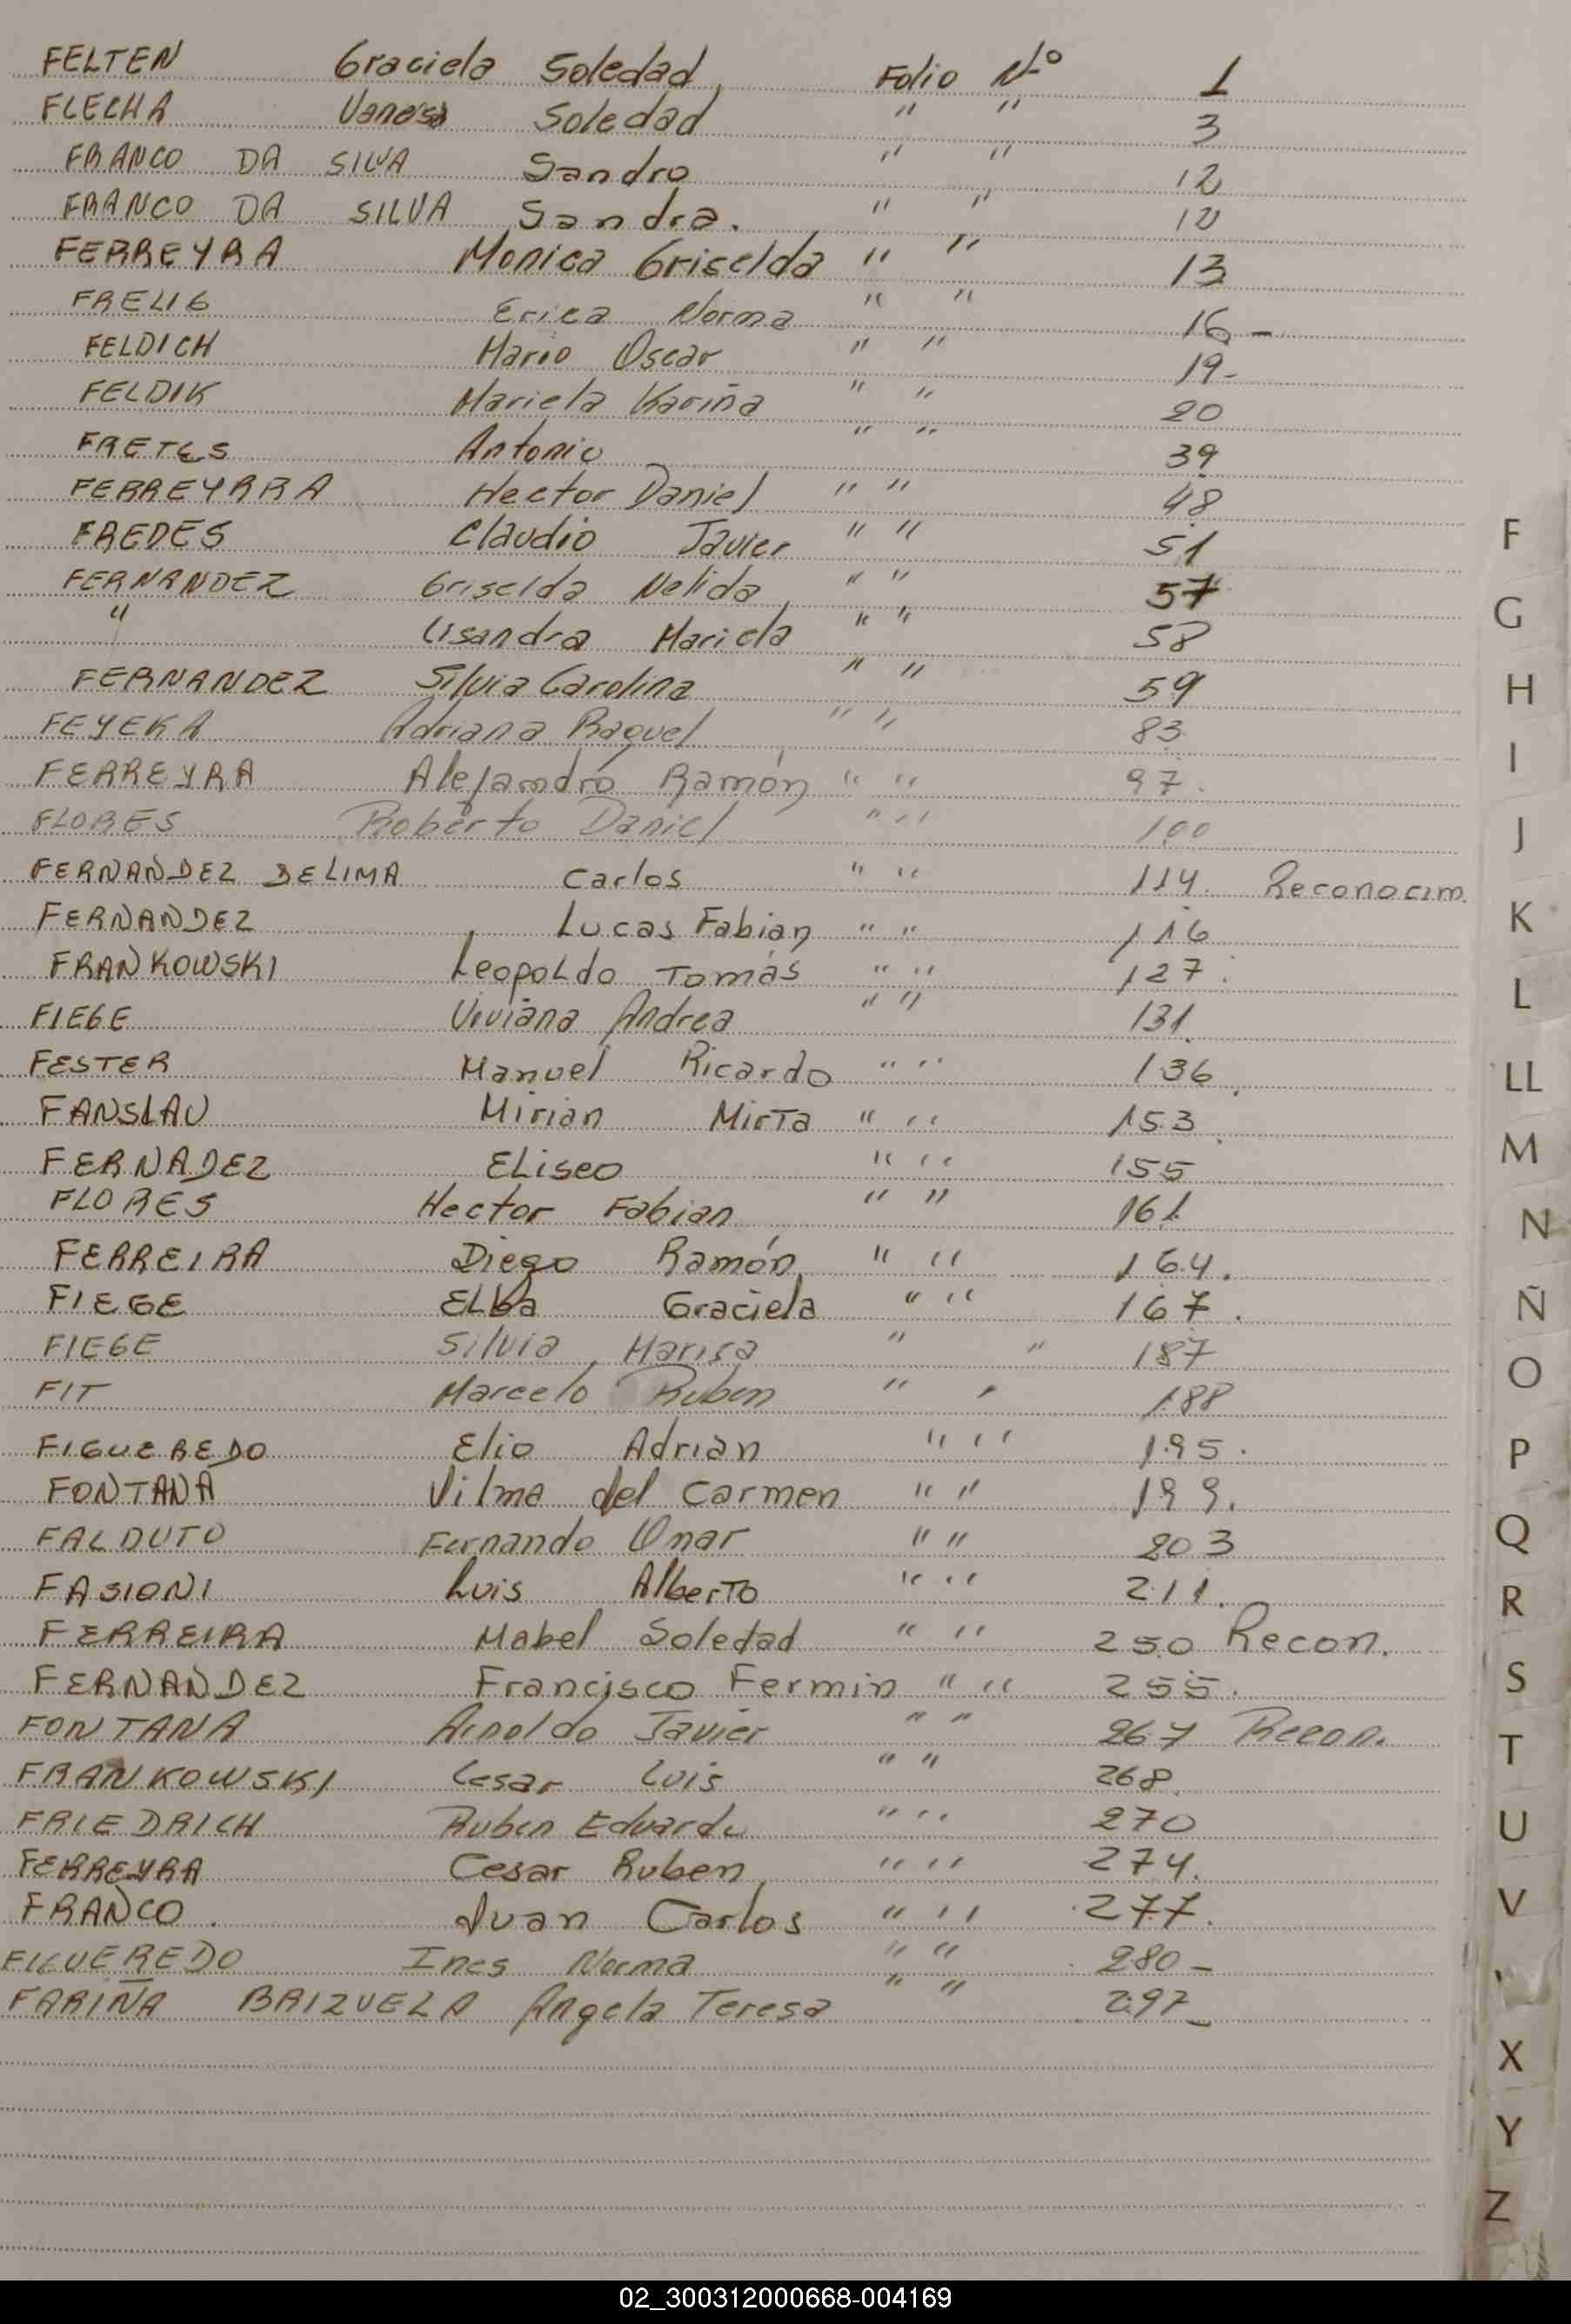 FELTEN Graciela Soledad Folio Nº 1
FLECHA Vanesa Soledad " " 3
FRANCO DA SILVA Sandro " " 12
FRANCO DA SILVA Sandra. " " 12
FERREYRA Monica Griselda " " 13
FRELIG Erica Norma " " 16 -
FELDICH Mario Oscar " " 19-
FELDIK Mariela Kariña " " 20
FRETES Antonio " " 39
FERREYRRA Hector Daniel " " 48
FREDES Claudio Javier " " 51
FERNANDEZ Griselda Nelida " " 57
" Lisandra Mariela " " 58
FERNANDEZ Silvia Carolina " " 59
FEYEKA Adriana Raquel " " 83
FERREYRA Alejandro Ramón " " 97.
FLORES Roberto Daniel " " 100
FERNANDEZ DELIMA Carlos " " 114. Reconocim.
FERNANDEZ Lucas Fabian " " 116
FRANKOWSKI Leopoldo Tomás " " 127.
FIEGE Viviana Andrea " " 131
FESTER Manuel Ricardo " " 136
FANSLAU Mirian Mirta " " 153
FERNADEZ Eliseo " " 155
FLORES Hector Fabian " " 161
FERREIRA Diego Ramón " " 164.
FIEGE Elba Graciela " " 167.
FIEGE Silvia Marisa " " 187
FIT Marcelo Ruben " " 188
FIGUEREDO Elio Adrian " " 195.
FONTANA Vilma del Carmen " " 199.
FALDUTO Fernando Omar " " 203
FASIONI Luis Alberto " " 211.
FERREIRA Mabel Soledad " " 250 Recon.
FERNANDEZ Francisco Fermin " " 255.
FONTANA Arnoldo Javier " " 267 Recon.
FRANKOWSKI Cesar Luis " " 268
FRIEDRICH Ruben Eduardo " " 270
FERREYRA Cesar Ruben " " 274.
FRANCO. Juan Carlos " " 277.
FIGUEREDO Ines Norma " " 280-
FARIÑA BRIZUELA Angela Teresa " " 297-
F
G
H
I
J
K
L
LL
M
N
Ñ
O
P
Q
R
S
T
U
V
X
Y
Z
02_300312000668-004169